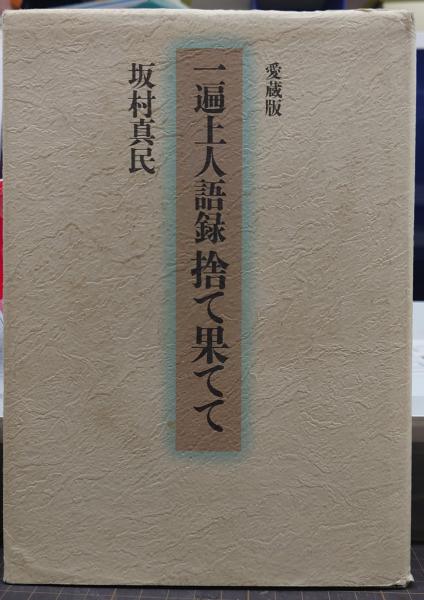 愛蔵版
一遍上人語録 捨て果てて
坂村真民